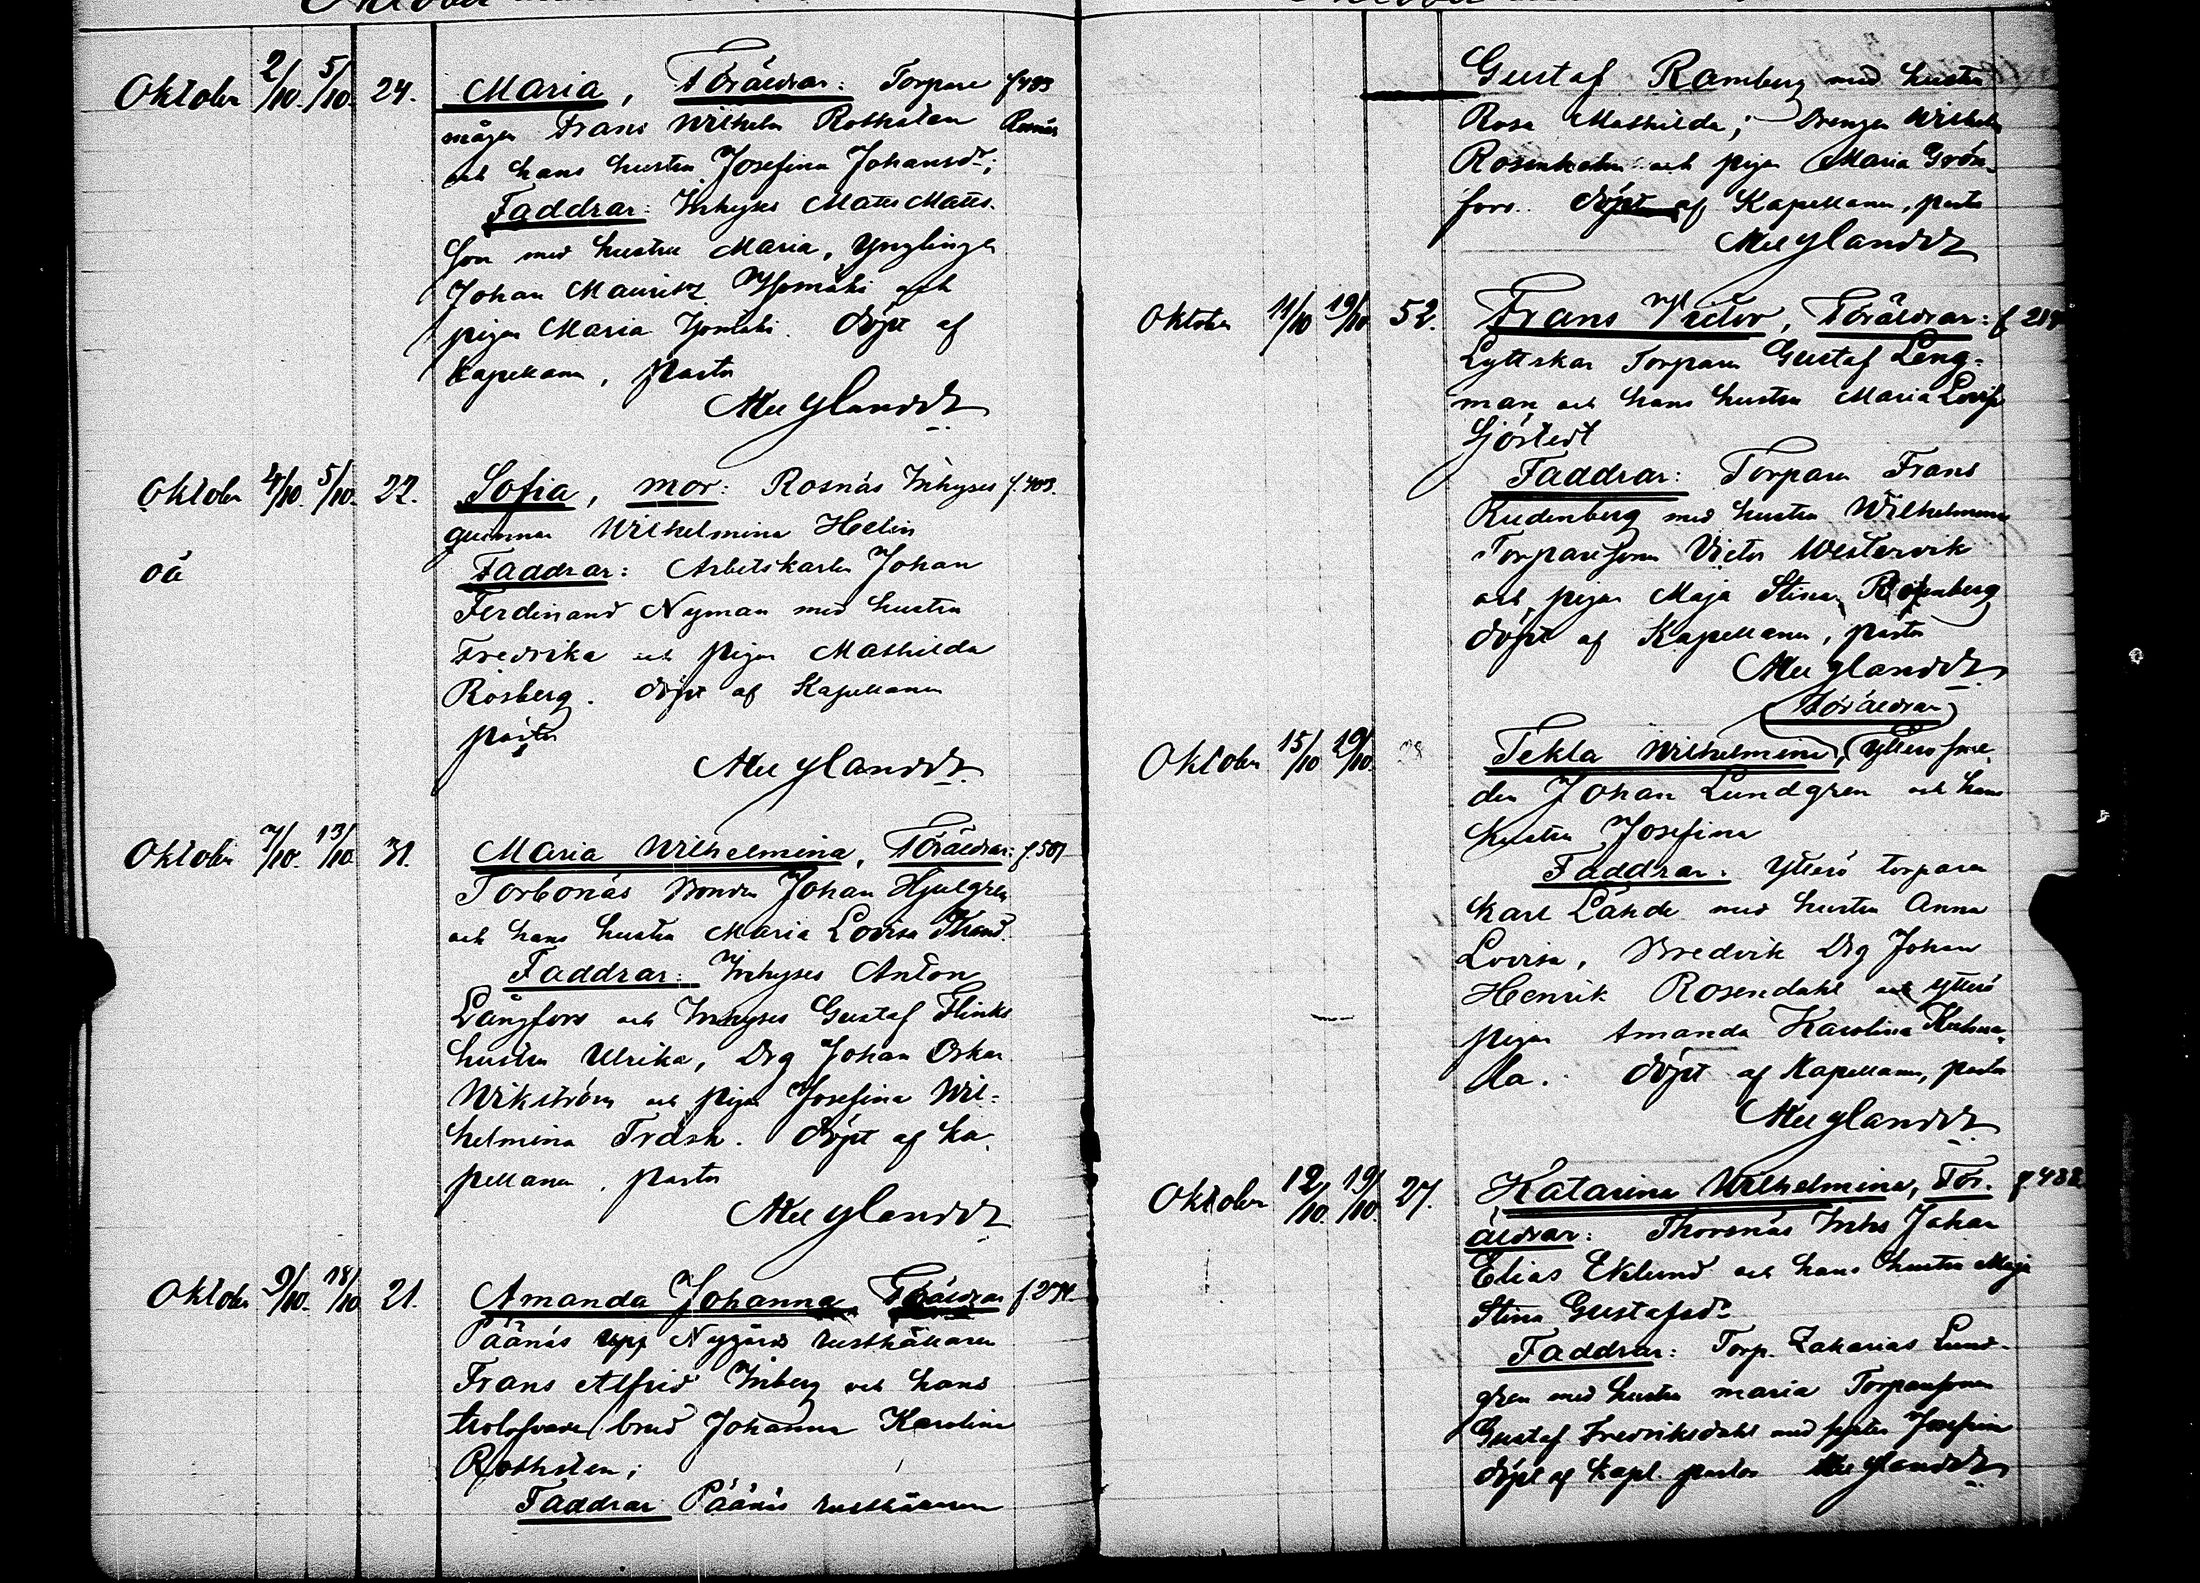 Oktober 2/10. 5/10. 24. Maria, Föräldrar: Torpare f 403
mågen Frans Wilhelm Rothsten Rosnäs
och hans hustru Josefina Johansdr;
Faddrar: Inhyses Matts Matts-
son med hustru Maria, Ynglingen
Johan Mauritz och
pigan Maria döpt af
Kapellanen, pastor
Oktober 4/10. 5/10. 22. Sofia, mor: Rosnäs Inhyses f. 403.
qvinnan Wilhelmina Helin
oä Faddrar: Arbetskarlen Johan
Ferdinand Nyman med hustru
Fredrika och pigan Mathilda
Rosberg. döpt af Kapellanen
pastor
Oktober 7/10. 13/10. 31. Maria Wilhelmina, Föräldrar: f. 501
Torbonäs Bonden Johan Hjulgren
och hans hustru Maria Lovisa
Faddrar: Inhyses Anton
Långfors och Inhyses Gustaf Flinks
hustru Ulrika, Drg Johan Oskar
Wikström och pigan Josefina Wil-
helmina Träsk. döpt af ka-
pellanen, pastor
Oktober 9/10. 18/10 21. Amanda Johanna Föräldrar
Päänäs Nygård rusthållaren
Frans Alfrid Inberg och hans
trolofvade brud Johanna Karolina
Rothsten;
Faddrar: Päänäs rusthållaren
Gustaf Ramberg med hustru
Rosa Mathilda; Drengen Wilhelm
Rosenholm och pigan Maria Grön-
fors. döpt af Kapellanen, pastor
Oktober 11/10 19/10 52. Frans Victor, Föräldrar:
Lyttskär Torparen Gustaf Leng-
man och hans hustru Maria Lovisa
Sjöstedt
Faddrar: Torparen Frans
Rudenberg med hustru Wilhelmina
Torparesonen Victor Westervik
och pigan Maja Stina
döpt af Kapellanen, pastor
Föräldrar
Oktober 15/10 19/10. 28 Tekla Wilhelmina, Ytterö sme-
den Johan Lundgren och hans
hustru Josefina
Faddrar: Ytterö torparen
Karl Lähde med hustru Anna
Lovisa, Bredvik Drg Johan
Henrik Rosendahl och Ytterö
pigan Amanda Karolina
la. döpt af Kapellanen, pastor
Oktober 12/10. 19/10. 27. Katarina Wilhelmina, För-
äldrar: Thorsnäs Inhs Johan
Elias Eklund och hans hustru Maja
Stina Gustafsdr
Faddrar: Torp. Zakarias Lund-
gren med hustru Maria Torparesonen
Gustaf Fredriksdahl med syster Josefina
döpt af kapl. pastor